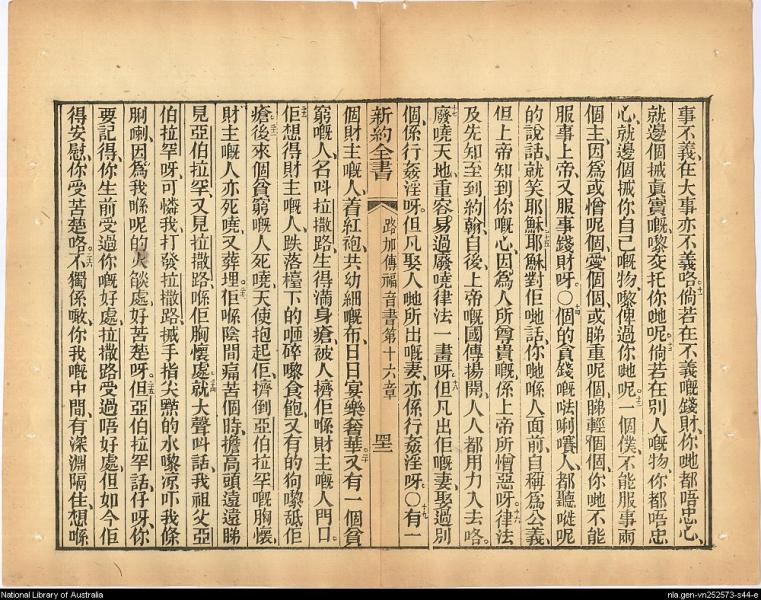 事不義在大事亦不義咯倘若在不義嘅錢財你哋都唔忠心
就邊個搣眞實嘅嚟交托你哋呢倘若在别人嘅物你都唔忠
心就邊個搣你自己嘅物嚟俾過你哋呢一個僕不能服事兩
個主因爲或憎呢個愛個個或睇重呢個睇輕個個你哋不能
服事上帝又服事錢財呀○個的貪錢嘅𠵽唎嚽人都聽嘥呢
的說話就笑耶穌耶穌對佢哋話你哋喺人面前自稱爲公義
但上帝知到你嘅心因爲人所尊貴嘅係上帝所憎惡呀律法
及先知至到約翰自後上帝嘅國傳揚開人人都用力入去咯
廢嘵天地重容易過廢嘵律法一畫呀但凡出佢嘅妻娶過别
個係行姦淫呀但凡娶人哋所出嘅妻亦係行姦淫呀○有一
新約全書
路加傳福音書第十六章
四十二
個財主嘅人着紅袍共幼細嘅布日日宴樂奢華又有一個貧
窮嘅人名呌拉撒路生得滿身瘡被人擠佢喺財主嘅人門口
佢想得財主嘅人跌落檯下的咂碎嚟食飽又有的狗嚟舐佢
瘡後來個貧窮嘅人死嘵天使抱起佢擠倒亞伯拉罕嘅胸懷
財主嘅人亦死嘵又葬埋佢喺陰間痛苦個時擔高頭遠遠睇
見亞伯拉罕又見拉撒路喺佢胸懷處就大聲呌話我祖父亞
伯拉罕呀可憐我打發拉撒路搣手指尖㸃的水嚟涼吓我條
脷喇因爲我喺呢的火燄處好苦楚呀但亞伯拉罕話仔呀你
要記得你生前受過你嘅好處拉撒路受過唔好處但如今佢
得安慰你受苦楚咯不獨係噉你我嘅中間有深淵隔住想喺
National Library of Australia
nla.gen-vn252573-s44-e